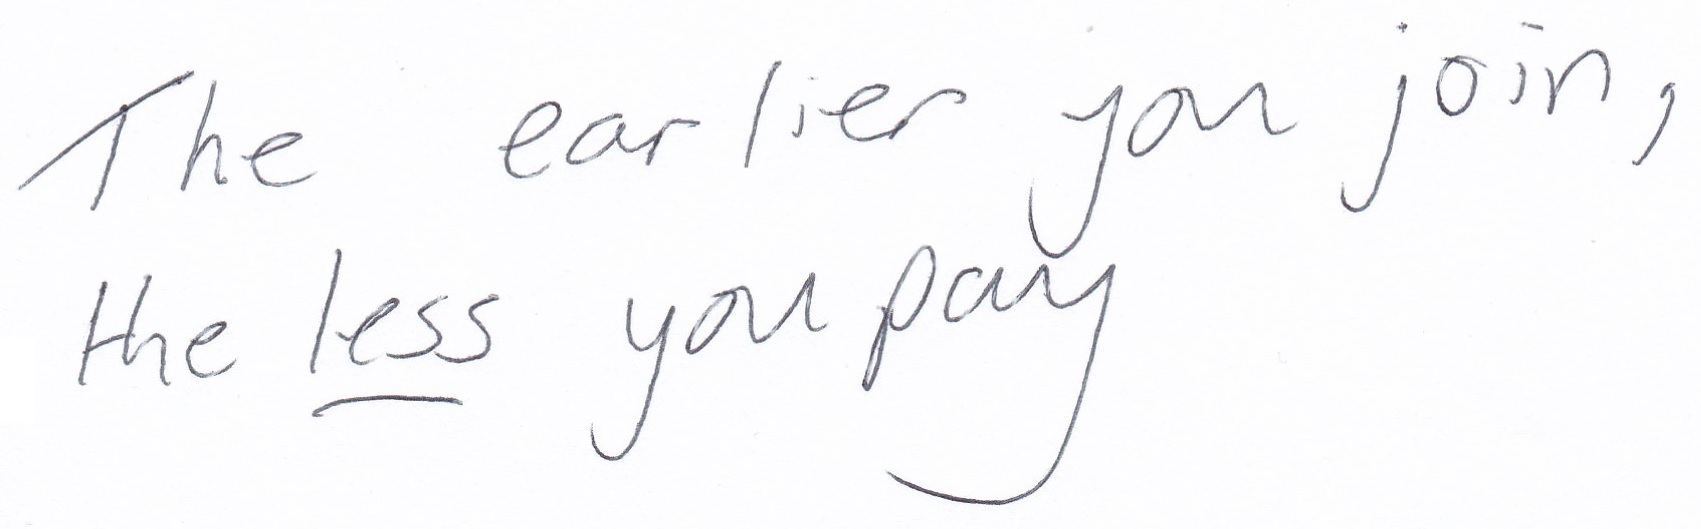 The earlier you join,
the less you pay